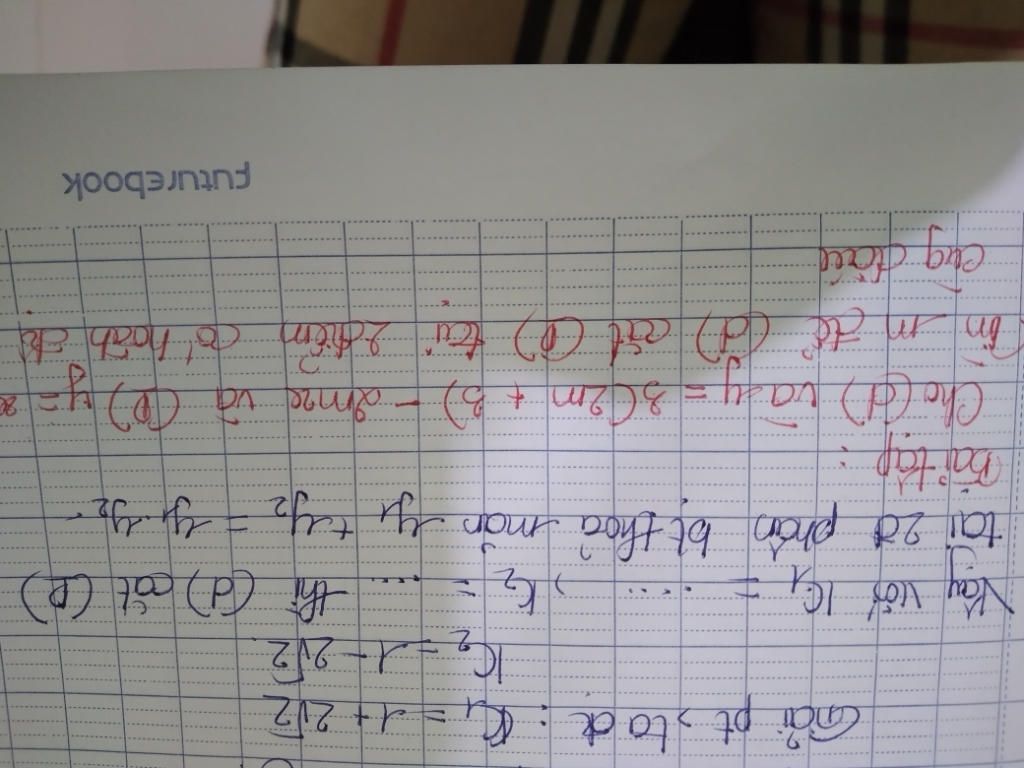 Giải pt, ta đc : K₁ = 1 + 2√2
K₂ = 1 - 2√2
Vậy với K₁ = ...., K₂ = .... thì (d) cắt (P)
tại 2đ phân bt thoả mãn y₁ + y₂ = y₁.y₂.
Bài tập :
Cho (d) và y = 3(2m + 3) - 2mx và (P) y = x
Tìm m để (d) cắt (P) tại 2 điểm có hoành độ
cùng dấu
Futurebook